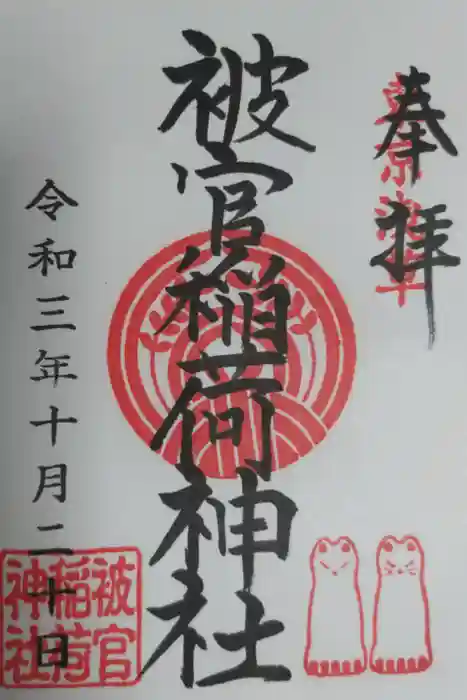 奉拝
東京浅草
被官稲荷神社
令和三年十月二十日
被官
稲荷
神社